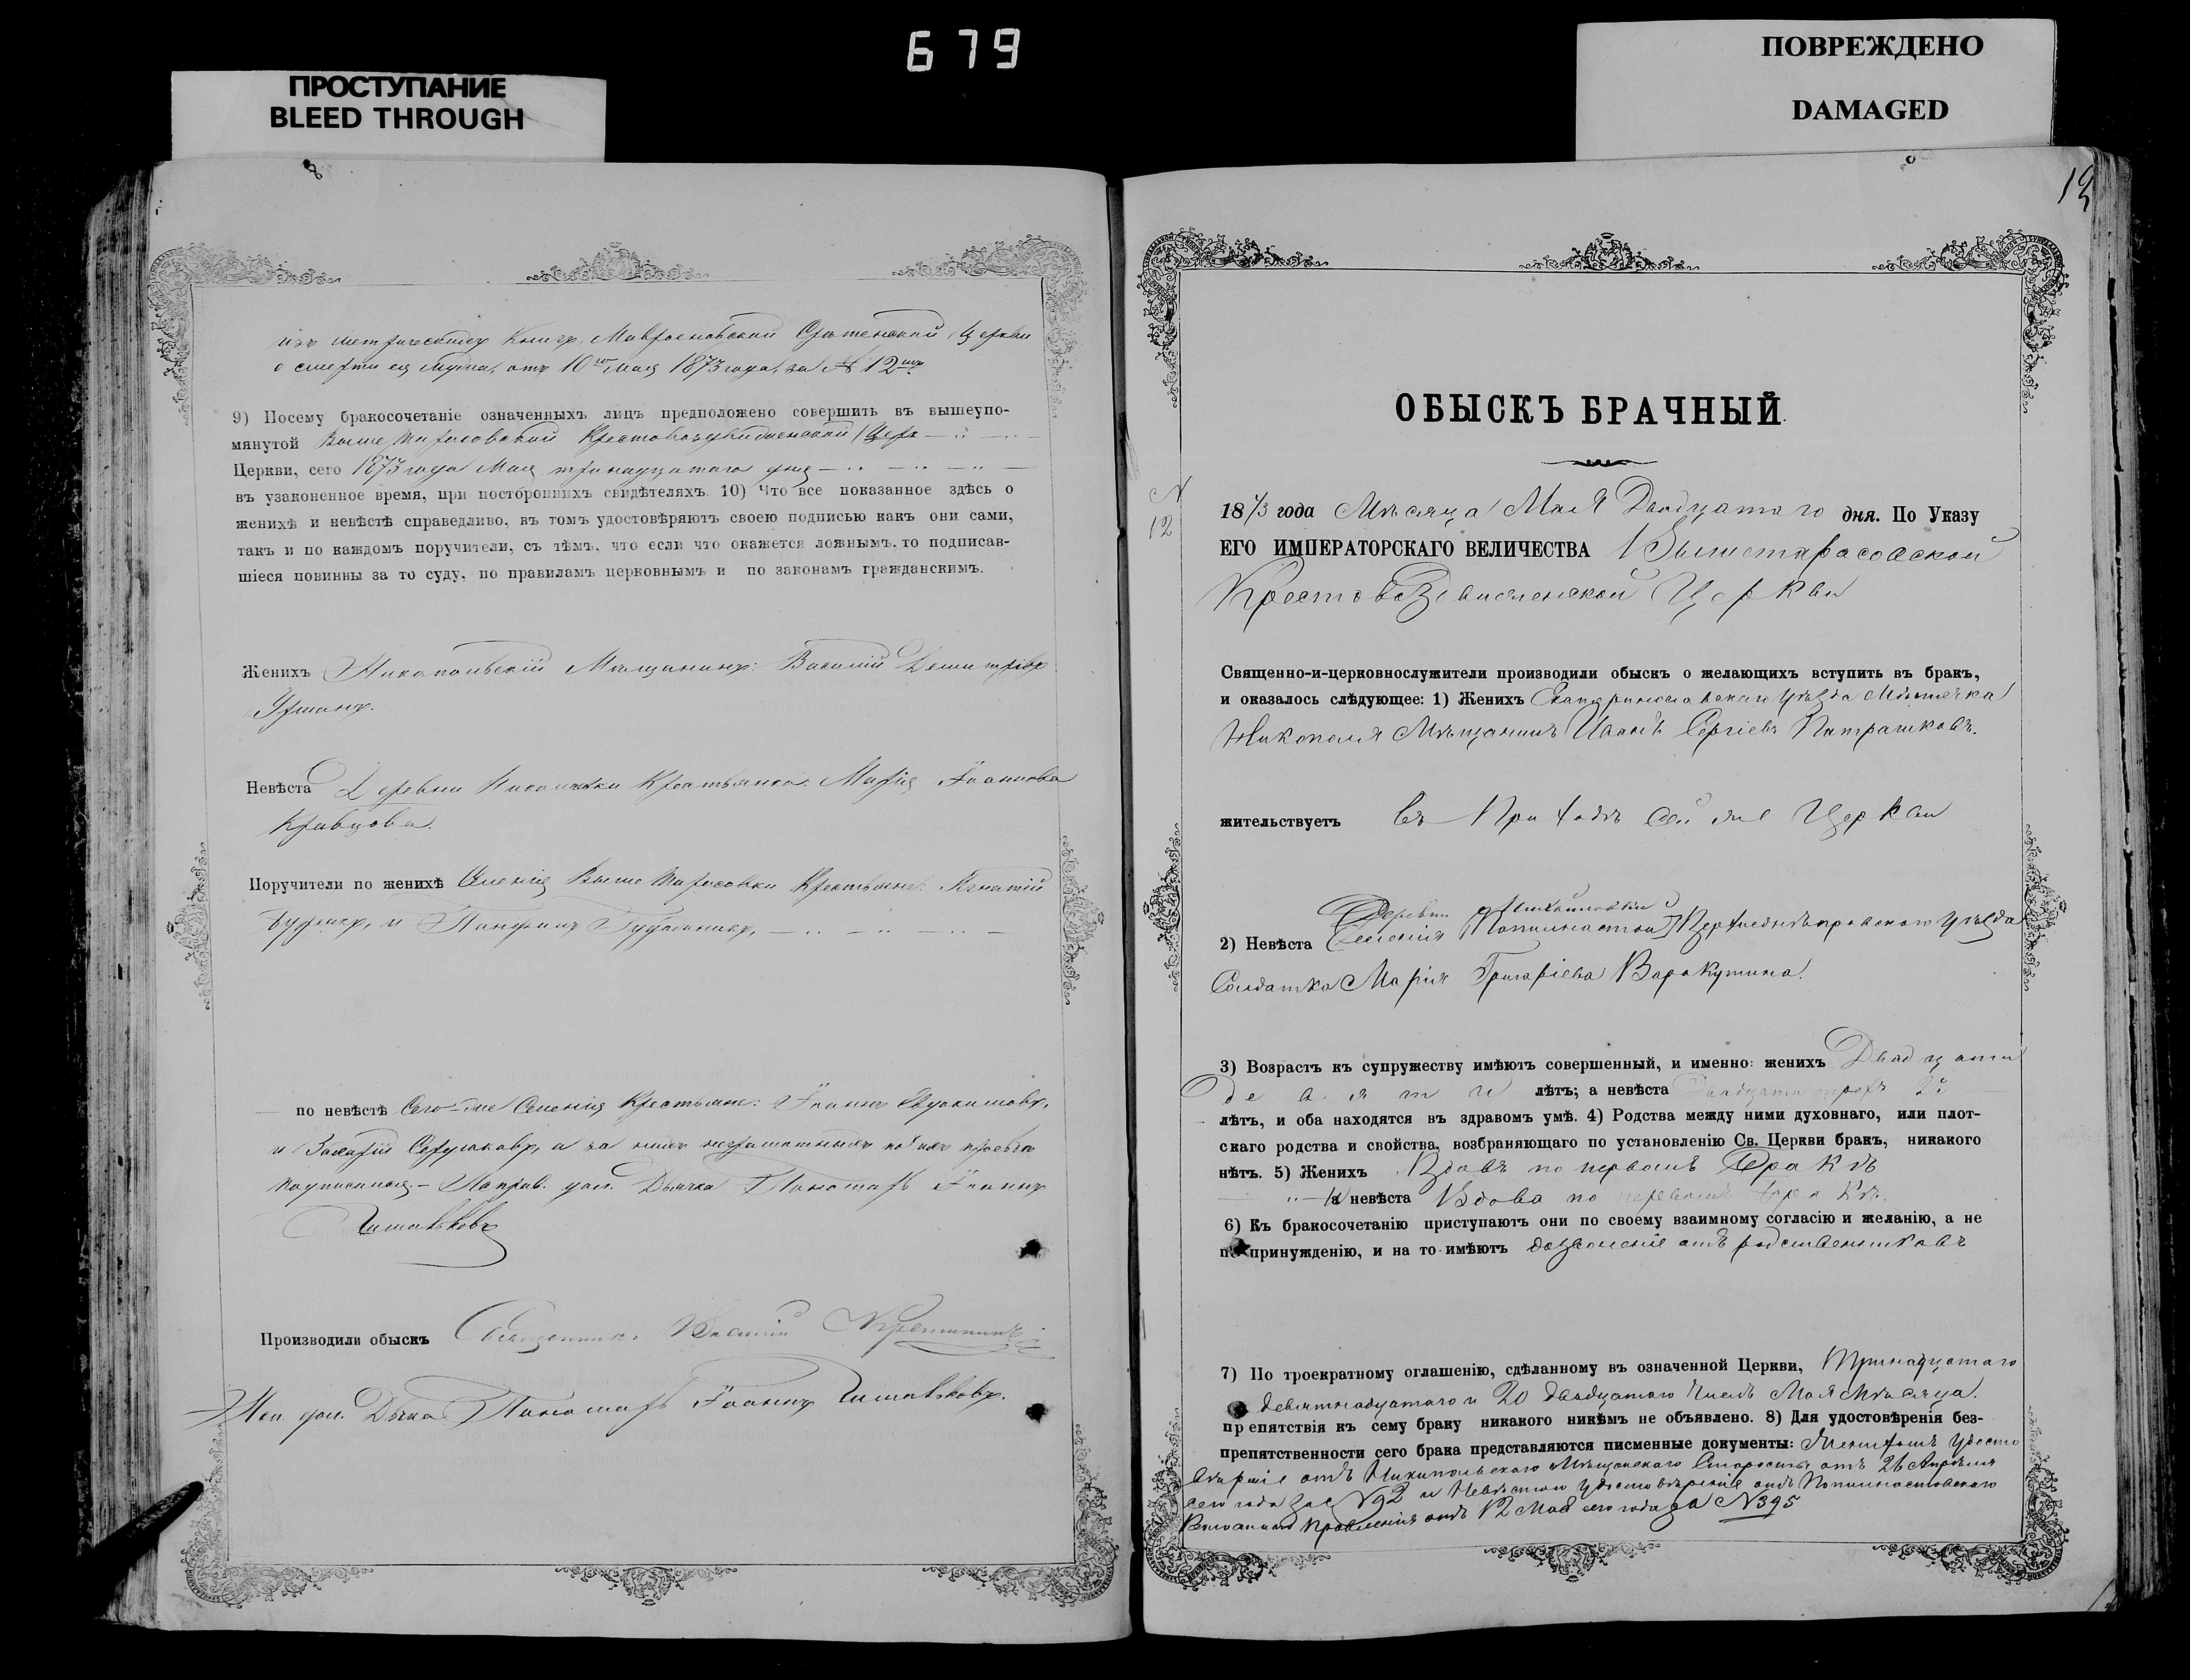 679
ПРОСТУПАНИЕ
BLEED THROUGH
ПОВРЕЖДЕНО
DAMAGED
изъ метрическихъ Книгъ, Мавриновской Срѣтенской Церкви
о смерти ея мужа, отъ 10го Мая 1873 года, за № 12мъ
9) Посему бракосочетаніе означенныхъ лицъ предположено совершить въ вышеупо-
мянутой Выше Тарасовской Крестовоздвиженской Церк
Церкви, сего 1873 года Мая тринадцатаго дня
въ узаконенное время, при постороннихъ свидѣтеляхъ. 10) Что все показанное здѣсь о
женихѣ и невѣстѣ справедливо, въ томъ удостовѣряютъ своею подписью какъ они сами,
такъ и по каждомъ поручители, съ тѣмъ, что если что окажется ложнымъ, то подписав-
шіеся повинны за то суду, по правиламъ церковнымъ и по законамъ гражданскимъ.
Женихъ Никопольскій Мѣщанинъ: Василій Димитріевъ
Невѣста Деревни Николаевки Крестьянка: Марія Іоаннова
Кравцова.
Поручители по женихѣ Селенія Выше Тарасовки Крестьяне: Игнатій
и
по невѣстѣ Сего-же Селенія Крестьяне: Іоаннъ Евдокимовъ,
и Захарій а за нихъ неграмотныхъ по ихъ прозьбѣ
подписался Исправ. дол. Дьячка Пономарь Іоаннъ
Чижевковъ
Производили обыскъ Священникъ Василій
Исп. дол. Дьячка Пономарь Іоаннъ
12
ОБЫСКЪ БРАЧНЫЙ.
N
12
1873 года Мѣсяца Мая Двадцатаго дня. По Указу
ЕГО ИМПЕРАТОРСКАГО ВЕЛИЧЕСТВА Вышетарасовской
КрестоВоздвиженской Церкви
Священно-и-церковнослужители производили обыскъ о желающихъ вступить въ бракъ,
и оказалось слѣдующее: 1) Женихъ Екатеринославскаго Уѣзда Мѣстечка
Никополя Мѣщанинъ Иванъ Сергіевъ Патрашковъ.
жительствуетъ въ Приходѣ сей же Церкви
Деревни Михайловки
2) Невѣста Селенія Попильностой Верхнеднѣпровскаго Уѣзда
Солдатка Марія Григоріева Варакутина.
3) Возрастъ къ супружеству имѣютъ совершенный, и именно: женихъ Двадцати
девяти лѣтъ; а невѣста Двадцати трехъ 23
лѣтъ, и оба находятся въ здравомъ умѣ. 4) Родства между ними духовнаго, или плот-
скаго родства и свойства, возбраняющаго по установленію Св. Церкви бракъ, никакого
нѣтъ. 5) Женихъ Вдовъ по первомъ бракѣ
а невѣста Вдова по первомъ бракѣ.
6) Къ бракосочетанію приступаютъ они по своему взаимному согласію и желанію, а не
по принужденію, и на то имѣютъ дозволеніе отъ родственниковъ
7) По троекратному оглашенію, сдѣланному въ означенной Церкви, Тринадцатаго
девятнадцатаго и 20 двадцатаго числъ Мая Мѣсяца.
препятствія къ сему браку никакого никѣмъ не объявлено. 8) Для удостовѣренія без-
препятственности сего брака представляются писменные документы: Женихомъ Удосто
вѣреніе отъ Никипольскаго Мѣщанскаго Старосты отъ 26 Апрѣля
сего года за N 92 и Невѣстою удостовѣреніе отъ Попильностовскаго
Волостнаго Правленія отъ 12 Мая сего года за N 395